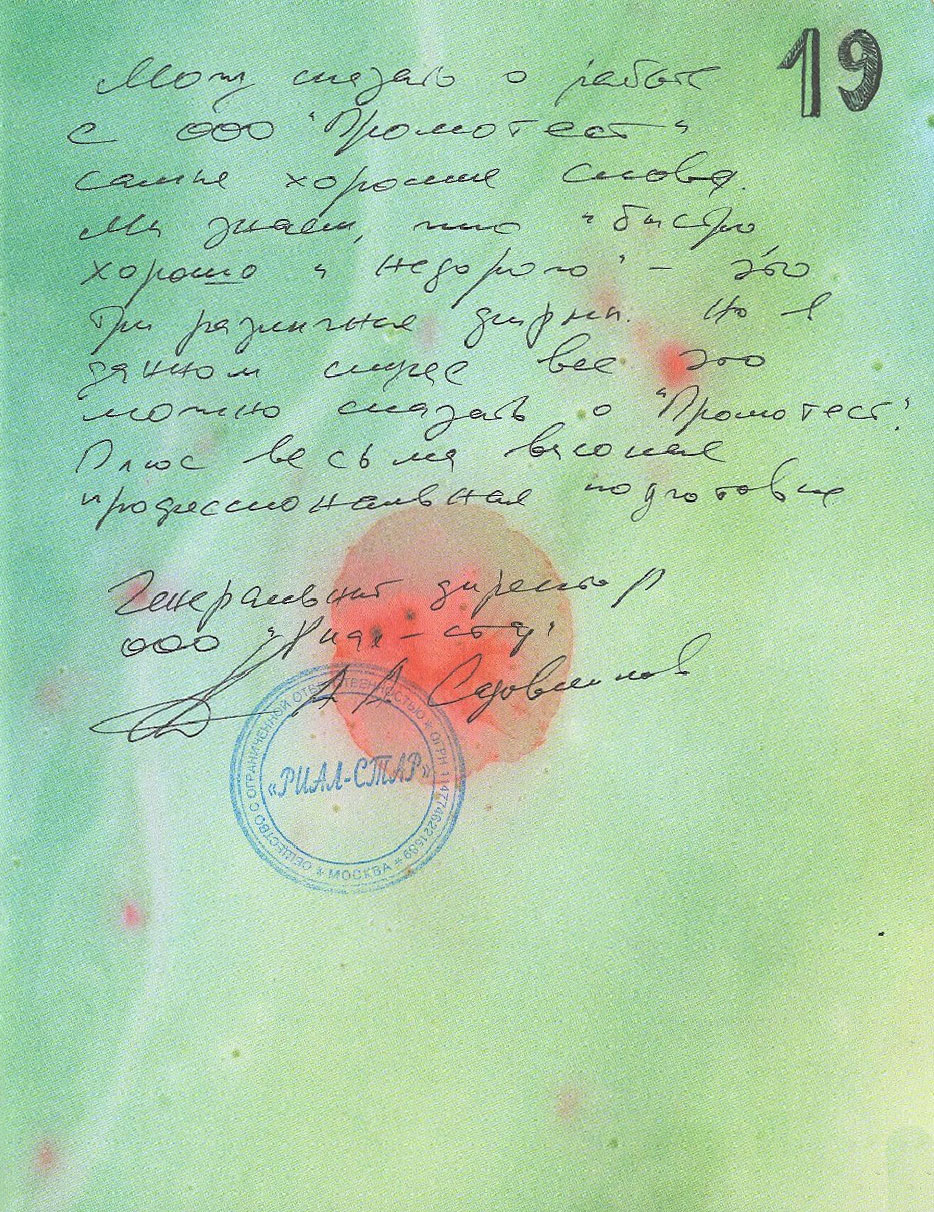 19
Могу сказать о работе
с ООО "Промотест"
самые хорошие слова.
Мы знаем, что "быстро,
хорошо и недорого" – это
три различные фирмы. Но в
данном случае все это
можно сказать о "Промотест".
Плюс весьма высокая
профессиональная подготовка
Генеральный директор
ООО "Риал-стар"
А В Садовников
ОБЩЕСТВО С ОГРАНИЧЕННОЙ ОТВЕТСТВЕННОСТЬЮ * ОГРН 1147746221599 * МОСКВА *
«РИАЛ-СТАР»